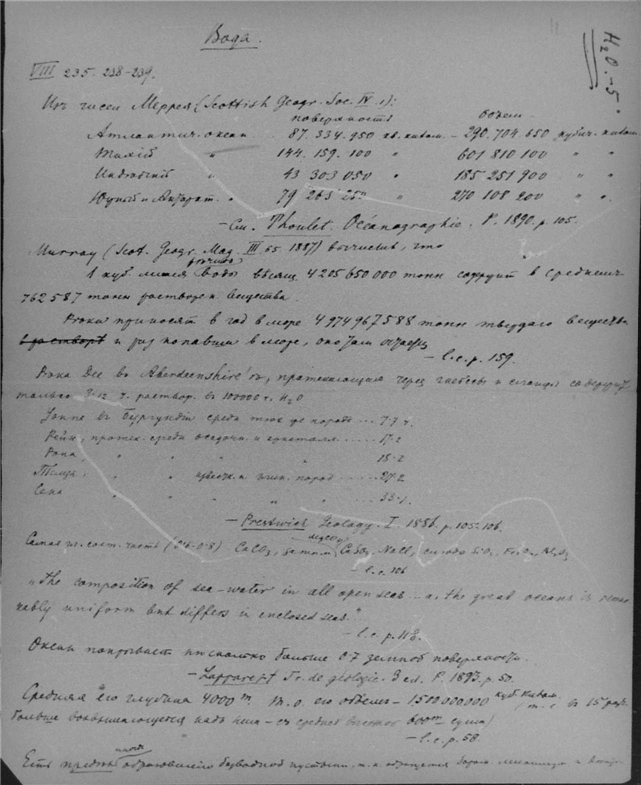 Вода.
H₂O.-5
VIII 235. 238-239.
Изъ чиселъ Меррея (Scottish Geogr. Soc. IV. 1):
поверхность объем.
Атлантич. океан 87.334.950 кв. килом. - 290.704.650 кубич. килом.
Тихій " 144.159.100 " 601 810 100 " "
Индійскій " 43 303 050 " 185 251 900 " "
Южный и Антаркт. " 79 263 250 " 270 108 200 " "
- См. Thoulet. Océanographie. P. 1890. p. 105.
Murray (Scot. Geogr. Mag. III 65. 1887) вычислилъ, что
речной
1 куб. миля воды 4 205 650 000 тонн содержит в среднем
762 587 тонн растворен. вещества.
Реки приносят в год в море 4 974 967 588 тонн твердаго вещества
и раз попавши в море, оно
- l.c.p. 159.
Река Dee въ Aberdeenshire'ѣ, протекающая через гнейсы и содержит
только 3.12 ч. раствор. въ 100000 ч. H₂O
Іонне въ Бургундіи среди пород ... 7.7 ч.
Рейн, протек. среди осадочн. и ...... 17.2
Рона " " " " 18.2
Темза " " известк. и пород .... 29.2
Сена " " " " 33.1.
- Prestwich Geology. I. 1886. p. 105-106.
часть (0.6-0.8) CaCO₃, затем CaSO₄, NaCl, SiO₂, Fe₂O₃, Al₂O₃
- l.c. 106
"The composition of sea-water in all open seas - a. the great oceans is remar-
kably uniform but differs in enclosed seas."
- l.c. p. 118.
Океан покрывает несколько больше 0.7 земной поверхности.
- Lapparent Tr. de géologie. 3 ed. P. 1893. p. 50.
Средняя его глубина 4000 m. Т.о. его объем - 1500 000 000 куб. килом. (т.е. в 15 раз
больше возвышающейся над ним - съ средней высотой 600 m суши)
- l.c. p. 58.
Есть пустыни, т.к.